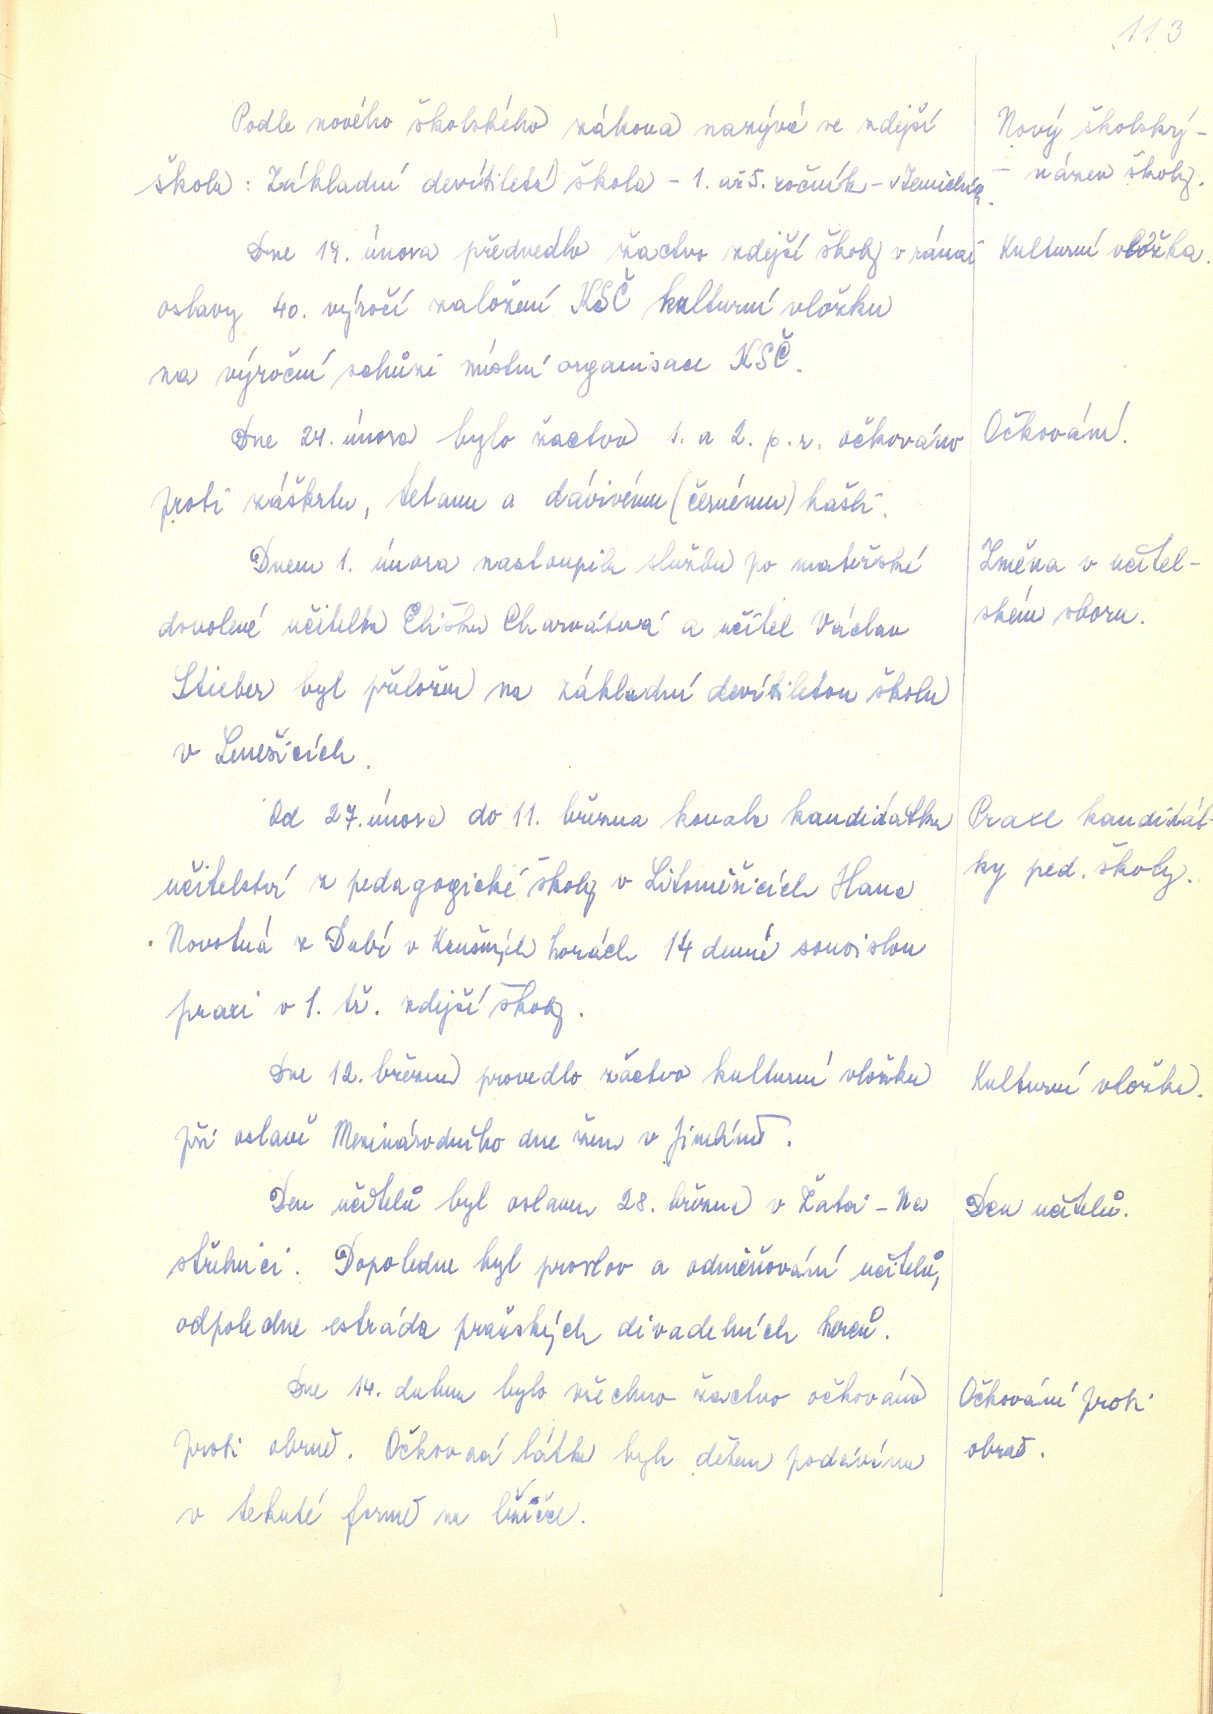 113
Podle nového školského zákona nazývá se zdejší
škola: Základní devítiletá škola – 1. až 5. ročník – v
Nový školský –
– název školy.
Dne 19. února předvedlo žactvo zdejší školy v rámci
oslavy 40. výročí založení KSČ kulturní vložku
na výroční schůzi místní organisace KSČ.
Kulturní vložka.
Dne 24. února bylo žactvo 1. a 2. p. r. očkováno
proti záškrtu, tetanu a dávivému (černému) kašli.
Očkování.
Dnem 1. února nastoupila službu po mateřské
dovolené učitelka Eliška Charvátová a učitel Václav
Stieber byl přeložen na základní devítiletou školu
v Lenešicích.
Změna v učitel-
ském sboru.
Od 27. února do 11. března konala kandidátka
učitelství z pedagogické školy v Litoměřicích Hana
Novotná z Dubí v Krušných horách 14 denní souvislou
praxi v 1. tř. zdejší školy.
Praxe kandidát-
ky ped. školy.
Dne 12. března provedlo žáctvo kulturní vložku
při oslavě Mezinárodního dne žen v Jimlíně.
Kulturní vložka.
Den učitelů byl oslaven 28. března v Žatci – Na
střelnici. Dopoledne byl proslov a odměňování učitelů,
odpoledne estráda pražských divadelních herců.
Den učitelů.
Dne 14. dubna bylo všechno žactvo očkováno
proti obrně. Očkovací látka byla dětem podávána
v tekuté formě na lžíčce.
Očkování proti
obrně.